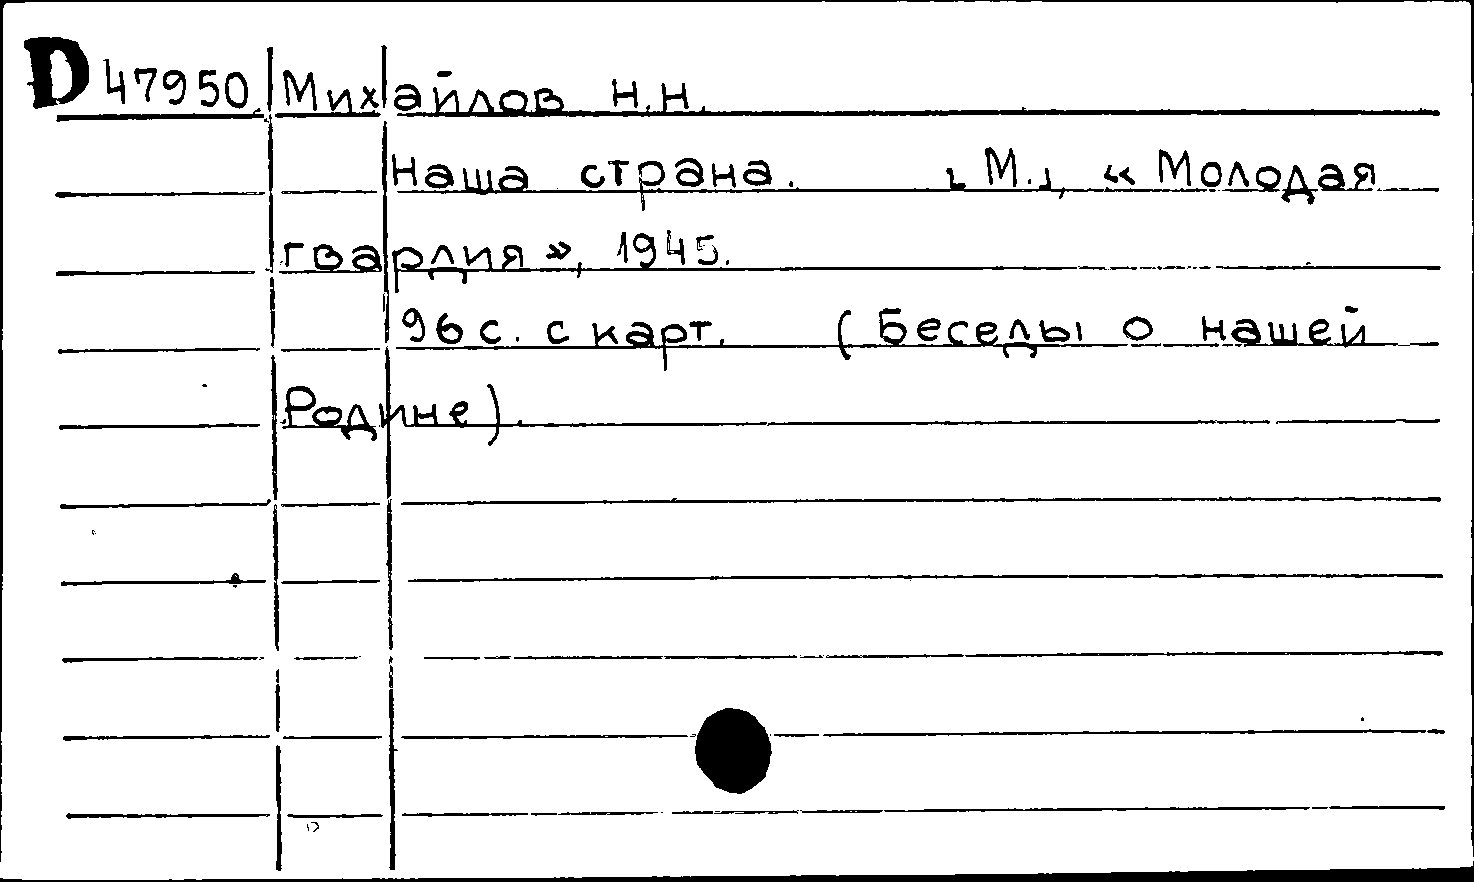 D 47950. Михайлов Н.Н.
Наша страна. [М.], «Молодая
гвардия», 1945.
96 с. с карт. (Беседы о нашей
Родине).